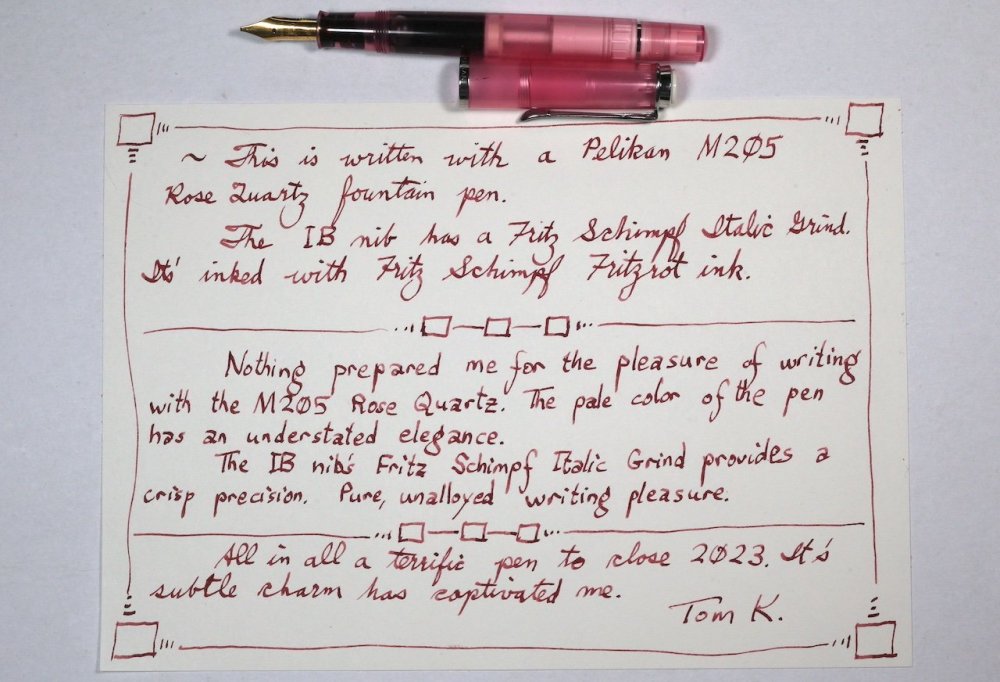 ~ This is written with a Pelikan M205
Rose Quartz fountain pen.
The IB nib has a Fritz Schimpf Italic Grind.
It's inked with Fritz Schimpf Fritzrot ink.
Nothing prepared me for the pleasure of writing
with the M205 Rose Quartz. The pale color of the pen
has an understated elegance.
The IB nib's Fritz Schimpf Italic Grind provides a
crisp precision. Pure, unalloyed writing pleasure.
All in all a terrific pen to close 2023. It's
subtle charm has captivated me.
Tom K.